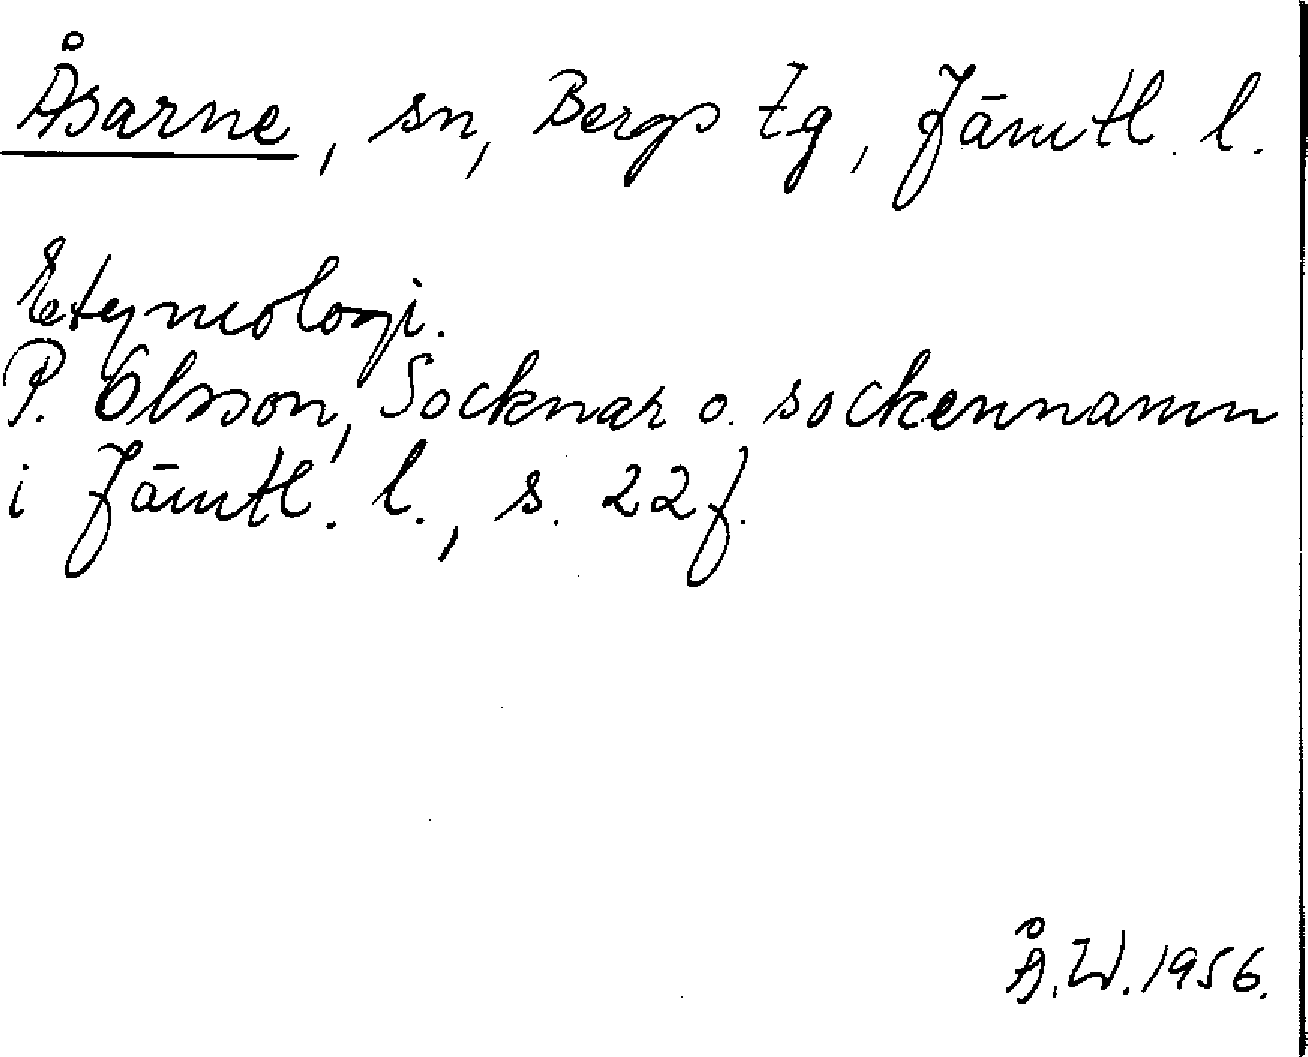 Åsarne, sn, Bergs tg, Jämtl. l.
Etymologi.
P. Olsson, Socknar o. sockennamn
i Jämtl. l., s. 22 f.
Å.W. 1956.